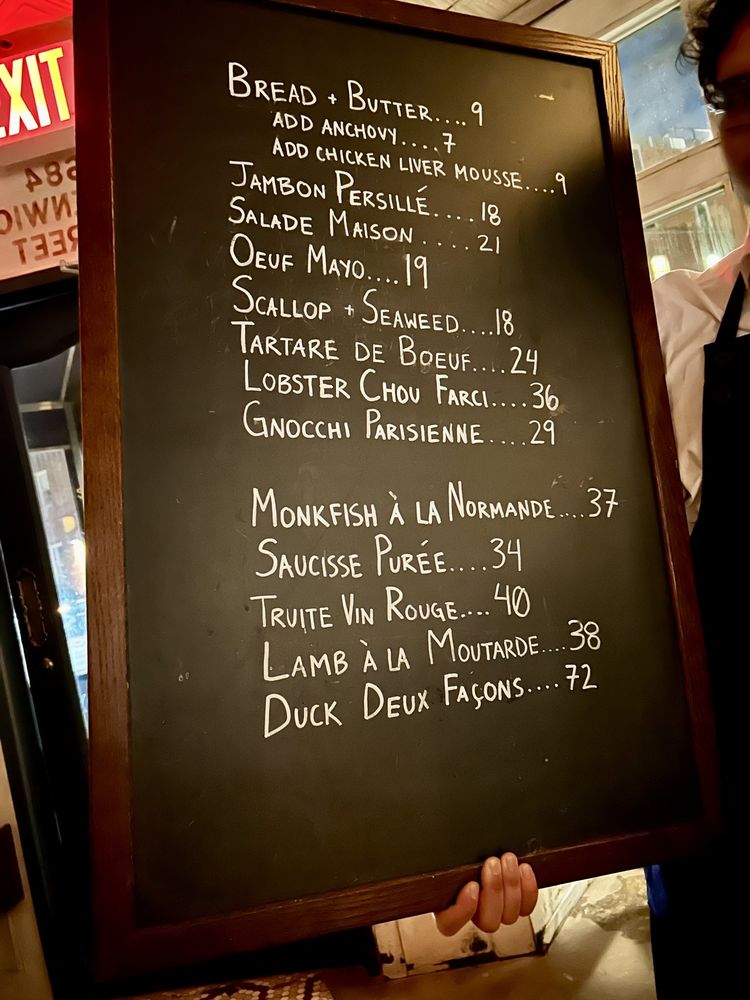 EXIT
684
ENWIC
REET
BREAD + BUTTER....9
ADD ANCHOVY....7
ADD CHICKEN LIVER MOUSSE....9
JAMBON PERSILLÉ....18
SALADE MAISON ....21
OEUF MAYO....19
SCALLOP + SEAWEED....18
TARTARE DE BOEUF....24
LOBSTER CHOU FARCI....36
GNOCCHI PARISIENNE....29
MONKFISH À LA NORMANDE....37
SAUCISSE PURÉE....34
TRUITE VIN ROUGE....40
LAMB À LA MOUTARDE....38
DUCK DEUX FAÇONS....72